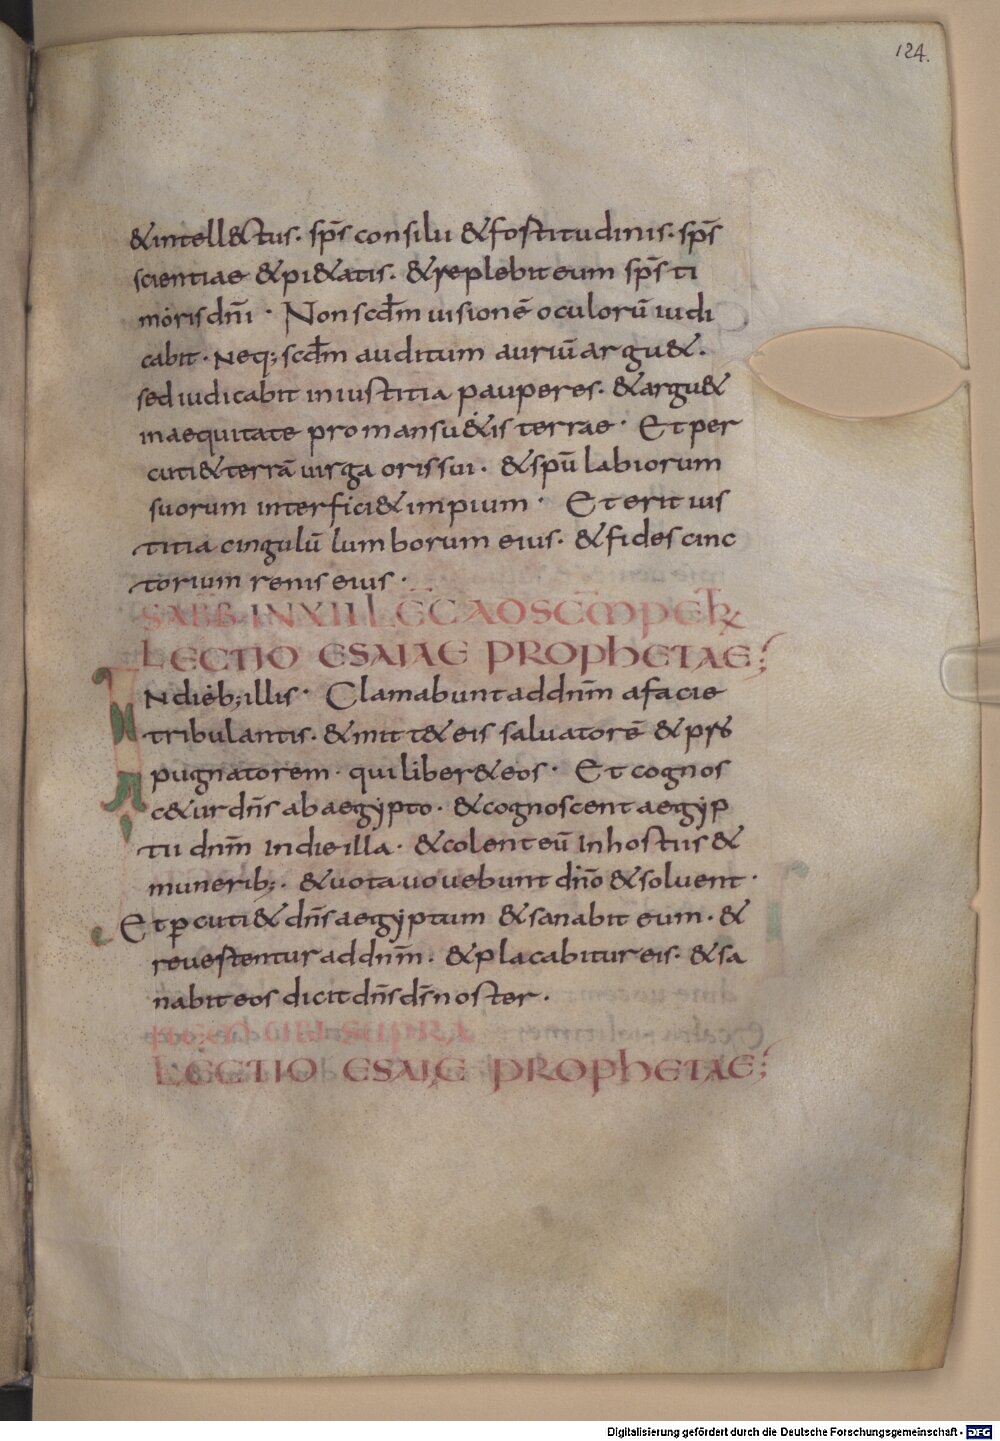 124.
&intell&ctus. sp̄s consilii &fortitudinis. sp̄s
scientiae &pi&atis. &replebit eum sp̄s ti
moris dn̄i. Non scd̄m uisionē oculorū iudi
cabit. Neq; scd̄m auditum auriū argu&.
sed iudicabit iniustitia pauperes. &argu&
in aequitate pro mansu&is terrae. Et per
cuti& terrā uirga oris sui. &spū labiorum
suorum interfici& impium. Et erit ius
titia cingulū lumborum eius. &fides cinc
torium renis eius.
SABB. IN XII LEC AD SCM PETR
LECTIO ESAIAE PROPHETAE;
IN dieb; illis. Clamabunt ad dnm̄ a facie
tribulantis. &mitt& eis saluatorē &pro
pugnatorem. qui liber& eos. Et cognos
c&ur dn̄s ab aegypto. &cognoscent aegyp
tii dnm̄ In die illa. &colent eū In hostiis &
munerib;. &uota uouebunt dn̄o &soluent.
Et p̄cuti& dn̄s aegyptum &sanabit eum. &
reuertentur ad dnm̄. &placabitur eis. &sa
nabit eos dicit dn̄s ds̄ noster.
UBI SUPRA
LECTIO ESAIE PROPHETAE;
Digitalisierung gefördert durch die Deutsche Forschungsgemeinschaft - DFG